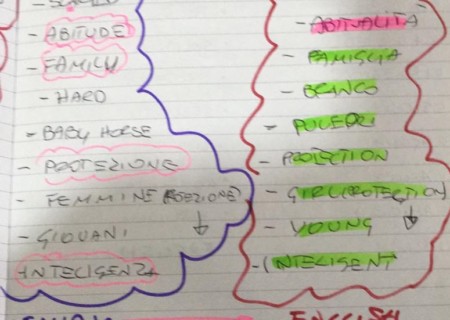 - ABITUDE
- FAMILY
- HARD
- BABY HORSE
- PROTEZIONE
- FEMMINE
- GIOVANI
- INTELIGENZA
- ABITUALITÀ
- FAMIGLIA
- BRANCO
- PULEDRI
- PROTECTION
- GIRL (PROTECTION)
- YOUNG
- INTELIGENT
ENGLISH